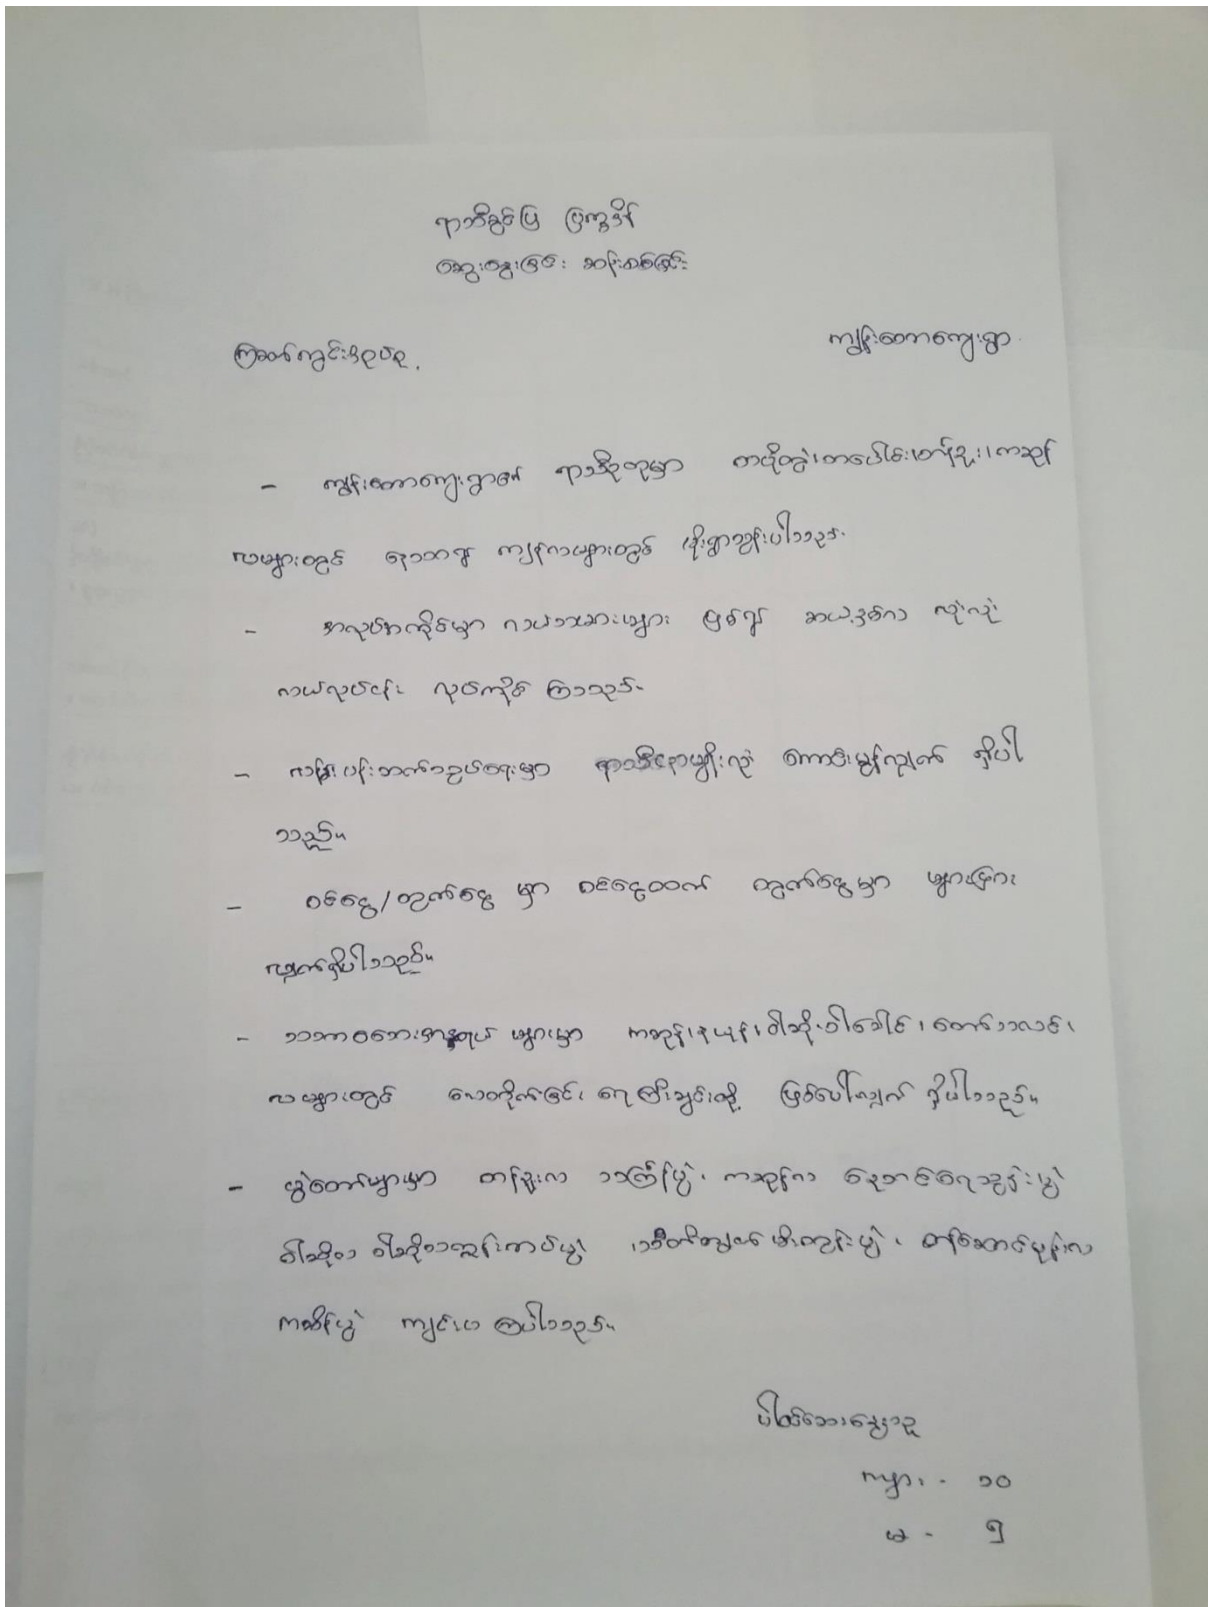 ရာသီခွင်ပြ ပြက္ခဒိန်
ဆွေးနွေးခြင်း ဆန်းစစ်ခြင်း
ကြခတ်ကွင်းအုပ်စု၊ ကျွန်းတောကျေးရွာ
- ကျွန်းတောကျေးရွာ၏ ရာသီဥတုမှာ တပို့တွဲ၊ တပေါင်း၊ တန်ခူး၊ ကဆုန်
လများတွင် နေသာ၍ ကျန်လများတွင် မိုးရွာသွန်းပါသည်။
- အလုပ်အကိုင်မှာ လယ်သမားများ ဖြစ်၍ ဆယ့်နှစ်လ လုံးလုံး
လယ်လုပ်ငန်း လုပ်ကိုင် ကြသည်။
- ကျန်းမာရေးမှာ ရာသီ လျက် ရှိပါ
သည်။
- ဝင်ငွေ/ထွက်ငွေ မှာ ဝင်ငွေထက် ထွက်ငွေမှာ များပြား
လျက်ရှိပါသည်။
- သဘာဝဘေးအန္တရာယ် များမှာ ကဆုန်၊ နယုန်၊ ဝါဆို၊ ဝါခေါင်၊ တော်သလင်း၊
လများတွင် လေတိုက်ခြင်း ရေကြီးခြင်းတို့ ဖြစ်ပေါ်လျက် ရှိပါသည်။
- ပွဲတော်များမှာ တန်ခူးလ သင်္ကြန်ပွဲ၊ ကဆုန်လ ညောင်ရေသွန်းပွဲ
ဝါဆိုလ ဝါဆိုသင်္ကန်းကပ်ပွဲ ၊သီတင်းကျွတ် မီးထွန်းပွဲ ၊ တန်ဆောင်မုန်းလ
ကထိန်ပွဲ ကျင်းပ ကြပါသည်။
ပါဝင်ဆွေးနွေးသူ
ကျား - ၁၀
မ - ၅